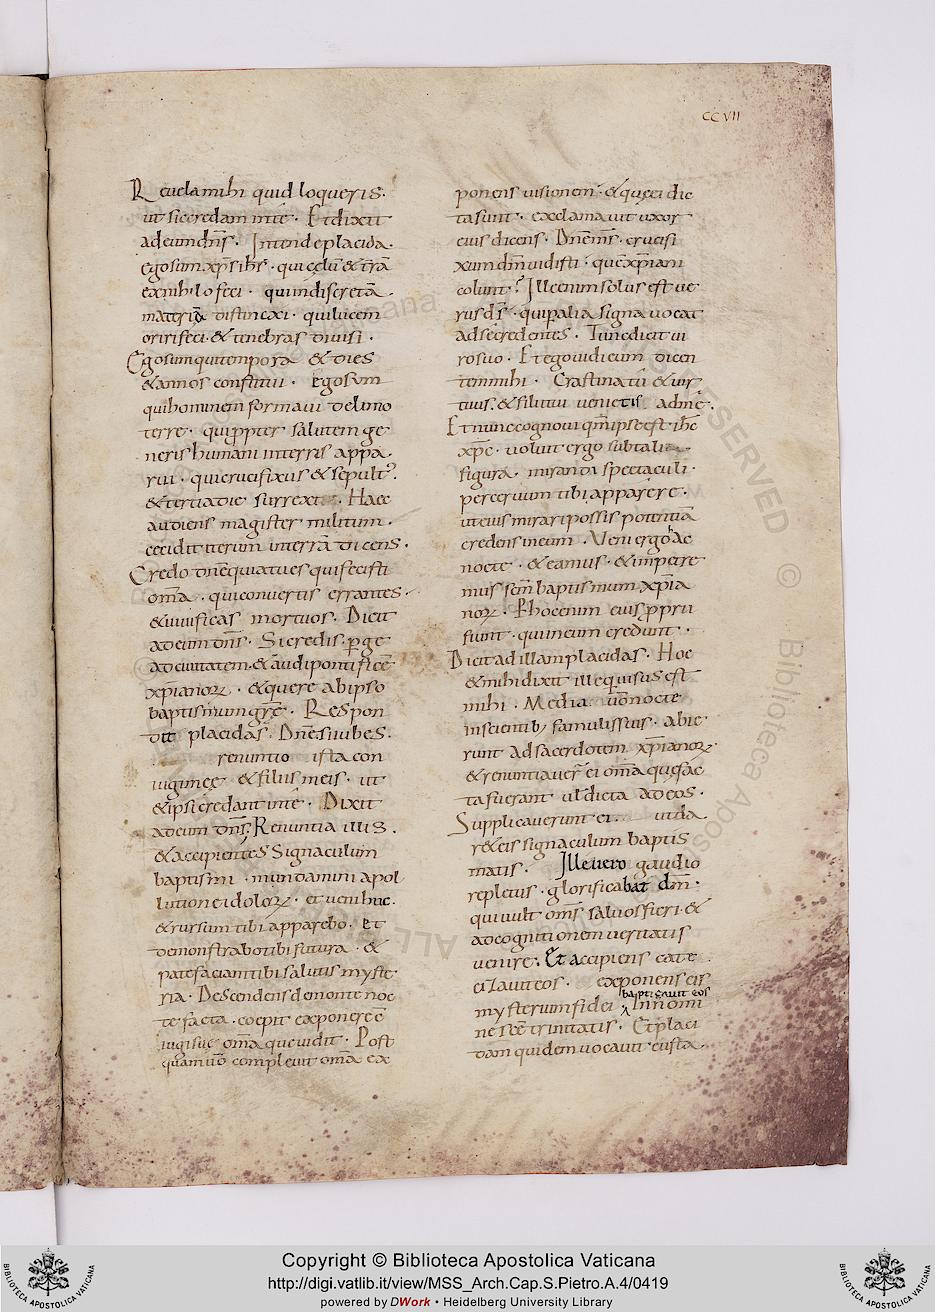 CCVII
Reuela mihi quid loqueris.
ut sic credam in te. Et dixit
ad eum dn̄s. Intende placida.
ego sum xp̄s ih̄s. qui celū & terrā
ex nihilo feci. qui indiscretā
materiā distinxi. qui lucem
oriri feci. & tenebras diuisi.
Ego sum qui tempora & dies
& annos constitui. Ego sum
qui hominem formaui de limo
terre. qui propter salutem ge
neris humani in terris appa
rui. qui crucifixus & sepult᾿.
& tertia die surrexi. Haec
audiens magister militum.
cecidit iterum in terrā dicens.
Credo dn̄e quia tu es qui fecisti
om̄a. qui conuertis errantes.
& uiuificas mortuos. Dicit
ad eum dn̄s. Si credis. perge
ad ciuitatem. & audi pontificē
xp̄ianoꝝ. & quere ab ipso
baptismum grē. Respon
dit placidas. Dn̄e si iubes.
renuntio ista con
iugi meę & filiis meis. ut
& ipsi credant in te. Dixit
ad eum dn̄s. Renuntia illis.
& accipientes signaculum
baptismi. mundamini a pol
lutione idoloꝝ. et ueni huc.
& rursum tibi apparebo. et
demonstrabo tibi futura. &
patefaciam tibi salutis myste
ria. Descendens de monte noc
te facta. coepit exponere
iugi suę om̄a que uidit. Post
quam uō compleuit om̄a ex
ponens uisionem. & que ei dic
ta sunt. exclamauit uxor
eius dicens. Dn̄e m̄s. crucifi
xum dm̄ uidisti. quē xp̄iani
colunt? Ille enim solus est ue
rus ds̄. qui p alia signa uocat
ad se credentes. Tunc dicit ui
ro suo. Et ego uidi eum dicen
tem mihi. Crastina tū & uir
tuus. & filii tui uenietis ad me.
Et nunc cognoui qm̄ ipse est ih̄c
xp̄c. uoluit ergo sub tali
figura. miranda spectaculi.
per ceruum tibi apparere.
ut eius mirari possis potentiā
credens in eum. Veni ergo hac
nocte. & eamus. & impetre
mus scm̄ baptismum xp̄ia
noꝝ. P hoc enim eius pprii
fiunt. qui in eum credunt.
Dicit ad illam placidas. Hoc
& mihi dixit ille qui uisus est
mihi. Media uō nocte
inscientib; famulis suis. abie
runt ad sacerdotem xp̄ianoꝝ.
& renuntiauer̄ ei om̄a quę fac
ta fuerant ul dicta ad eos.
Supplicauerunt ei ut da
r& eis signaculum baptis
matis. Ille uero gaudio
repletus. glorificabat dm̄.
qui uult oms̄ saluos fieri. &
ad cognitionem ueritatis
uenire. Et accipiens cate
cizauit eos. exponens eis
mysterium fidei.
bapt;izauit eos
In nomi
ne scē trinitatis. Et placi
dam quidem uocauit eusta
Copyright © Biblioteca Apostolica Vaticana
http://digi.vatlib.it/view/MSS_Arch.Cap.S.Pietro.A.4/0419
powered by DWork • Heidelberg University Library
BIBLIOTECA APOSTOLICA VATICANA
BIBLIOTECA APOSTOLICA VATICANA